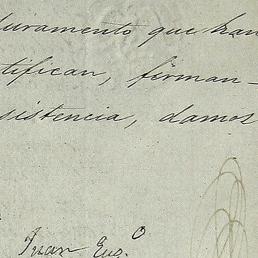 juramento que han
tifican, firman-
sistencia, damos
Juan Eug.º